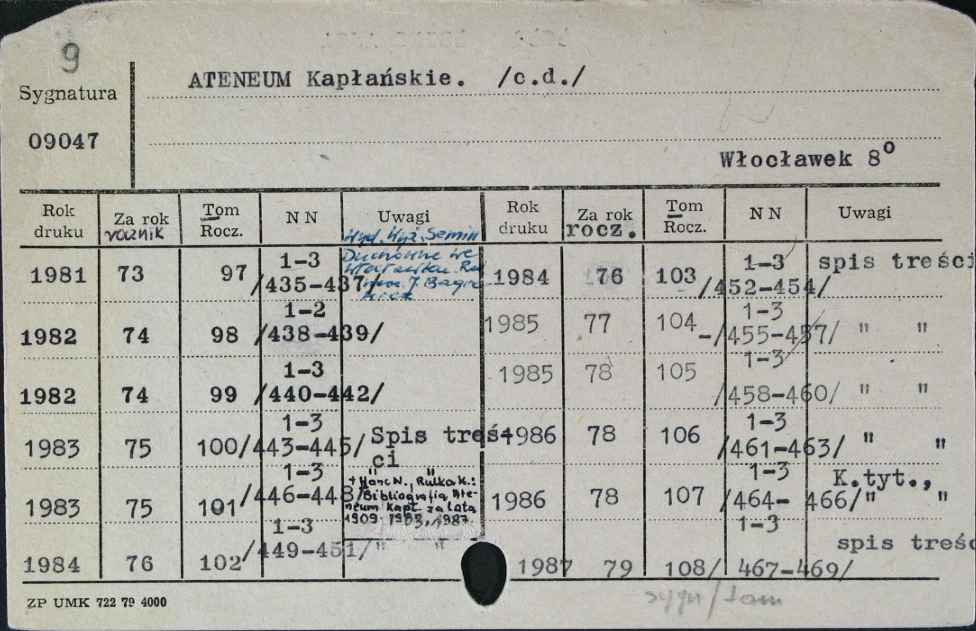 9
Sygnatura
09047
ATENEUM Kapłańskie. /c.d./
Włocławek 8°
Rok druku Za rok rocznik Tom Rocz. NN Uwagi Rok druku Za rok rocz. Tom Rocz. NN Uwagi
Wyd. Wyż. Semin.
Duchowne we
1981 73 97 1-3 /435-437/ 1984 76 103 1-3 /452-454/ spis treści
1982 74 98 1-2 /438-439/ 1985 77 104 1-3 -/455-457/ " "
1982 74 99 1-3 /440-442/ 1985 78 105 1-3 /458-460/ " "
1983 75 100 1-3 /443-445/ Spis treści 1986 78 106 1-3 /461-463/ " "
1983 75 101 1-3 /446-448/ " " 1986 78 107 1-3 /464-466/ K.tyt., " "
+ Hanc W., Rulka K.:
Bibliografia Ate-
neum Kapł. za lata
1909-1983, 1987
1984 76 102 1-3 /449-451/ " " 1987 79 108 1-3 /467-469/ spis treśc
ZP UMK 722 79 4000
sygn/tom